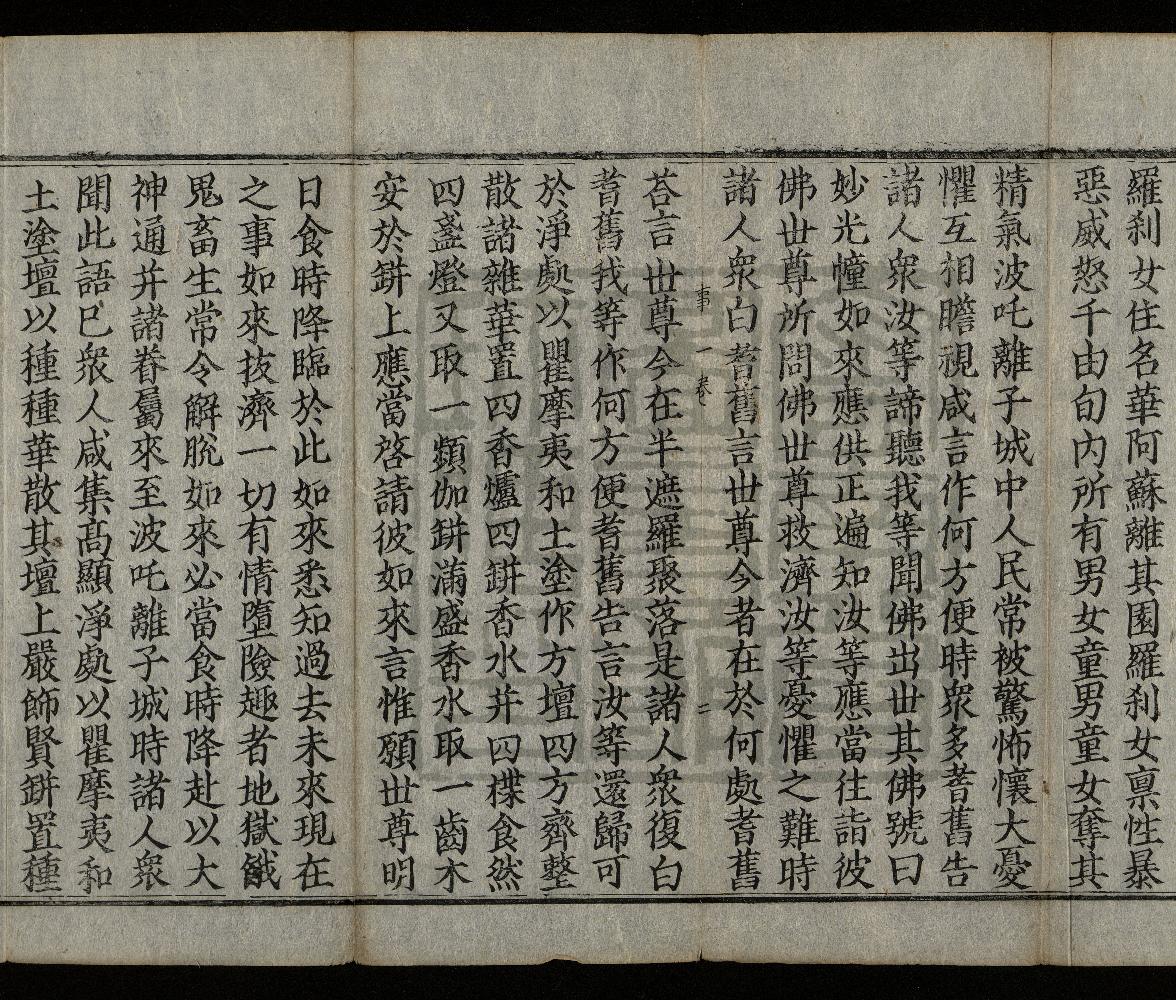 羅刹女住名華阿蘇離其園羅刹女禀性暴
惡威怒千由旬内所有男女童男童女奪其
精氣波吒離子城中人民常被驚怖懷大憂
懼互相瞻視咸言作何方便時衆多耆舊告
諸人衆汝等諦聽我等聞佛出世其佛號曰
妙光幢如來應供正遍知汝等應當往詣彼
佛世尊所問佛世尊救濟汝等憂懼之難時
諸人衆白耆舊言世尊今者在於何處耆舊
事一卷 二
荅言世尊今在半遮羅聚落是諸人衆復白
耆舊我等作何方便耆舊告言汝等還歸可
於淨處以瞿摩夷和土塗作方壇四方齊整
散諸雜華置四香爐四鉼香水并四楪食然
四盞燈又取一頻伽鉼滿盛香水取一齒木
安於鉼上應當啓請彼如來言惟願世尊明
日食時降臨於此如來悉知過去未來現在
之事如來拔濟一切有情墮險趣者地獄餓
鬼畜生常令解脫如來必當食時降赴以大
神通并諸眷屬來至波吒離子城時諸人衆
聞此語已衆人咸集髙顯淨處以瞿摩夷和
土塗壇以種種華散其壇上嚴飾賢鉼置種